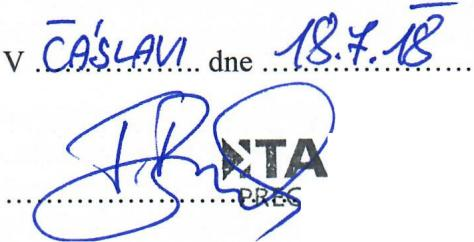 V ČÁSLAVI dne 18.7.18
NTA
PREC